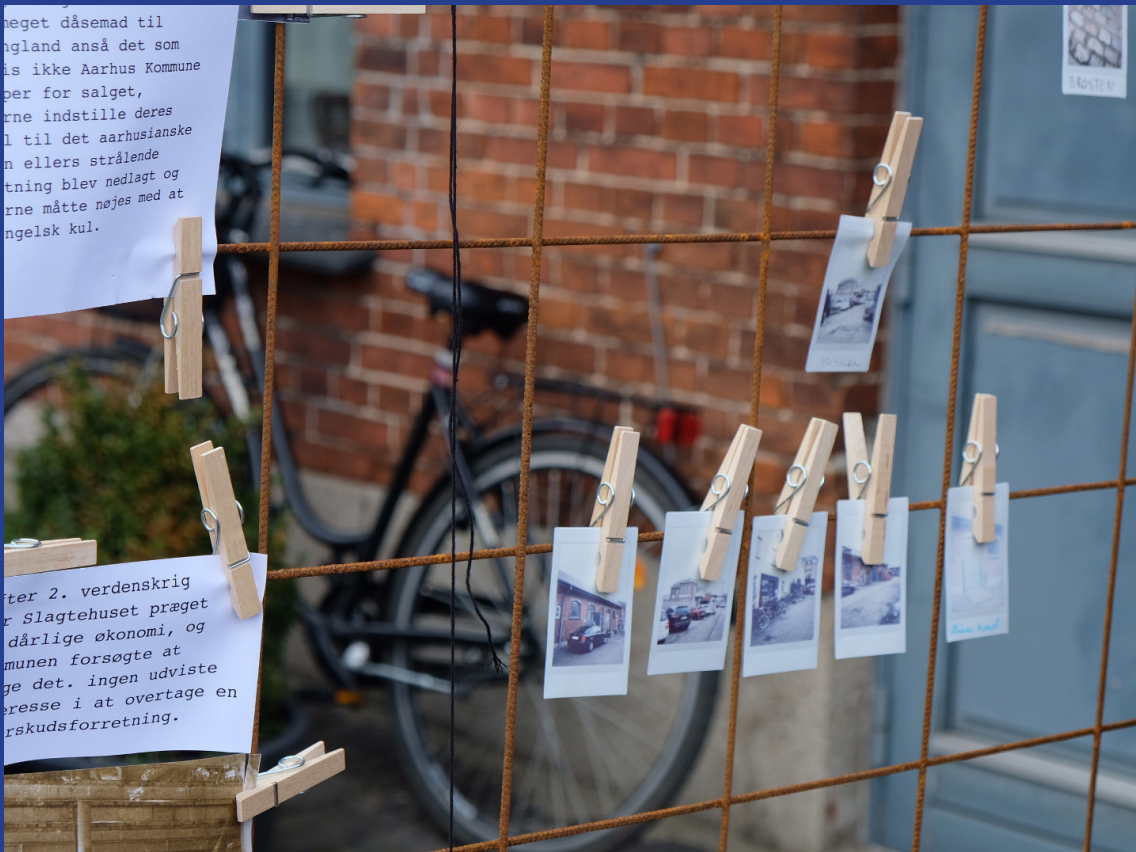 meget dåsemad til
ngland anså det som
is ikke Aarhus Kommune
per for salget,
rne indstille deres
l til det aarhusianske
n ellers strålende
tning blev nedlagt og
rne måtte nøjes med at
ngelsk kul.
fter 2. verdenskrig
r Slagtehuset præget
dårlige økonomi, og
munen forsøgte at
ge det. ingen udviste
eresse i at overtage en
rskudsforretning.
BROSTEN